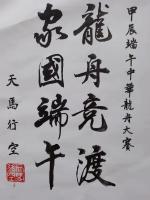 甲辰端午中華龍舟大賽
龍舟竞渡
家國端午
天馬行空